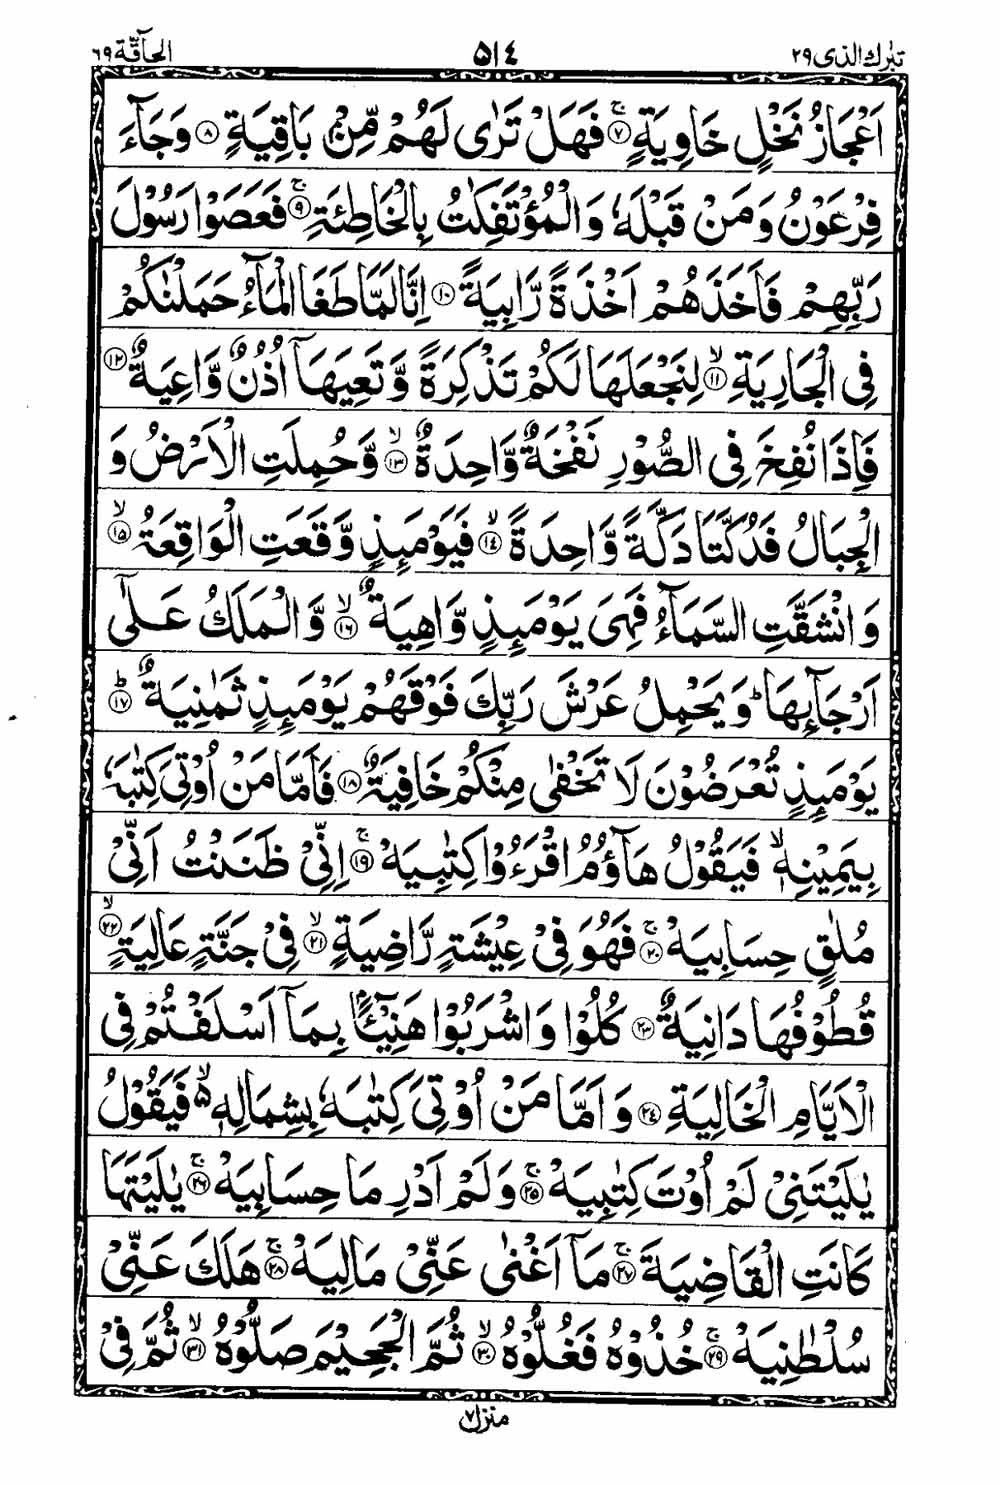 تبٰرك الذی ٢٩ ٥١٤ الحآقّة ٦٩
اَعْجَازُ نَخْلٍ خَاوِيَةٍ ۚ‏﴿۷﴾ فَهَلْ تَرٰى لَهُمْ مِّنْۢ بَاقِيَةٍ ﴿۸﴾ وَجَآءَ
فِرْعَوْنُ وَمَنْ قَبْلَهٗ وَالْمُؤْتَفِكٰتُ بِالْخَاطِئَةِ ۚ﴿۹﴾ فَعَصَوْا رَسُوْلَ
رَبِّهِمْ فَاَخَذَهُمْ اَخْذَةً رَّابِيَةً ﴿۱۰﴾ اِنَّا لَمَّا طَغَا الْمَآءُ حَمَلْنٰكُمْ
فِى الْجَارِيَةِ ۙ﴿۱۱﴾ لِنَجْعَلَهَا لَكُمْ تَذْكِرَةً وَّتَعِيَهَاۤ اُذُنٌ وَّاعِيَةٌ ﴿۱۲﴾
فَاِذَا نُفِخَ فِى الصُّوْرِ نَفْخَةٌ وَّاحِدَةٌ ۙ﴿۱۳﴾ وَّحُمِلَتِ الْاَرْضُ وَ
الْجِبَالُ فَدُكَّتَا دَكَّةً وَّاحِدَةً ۙ﴿۱٤﴾ فَيَوْمَئِذٍ وَّقَعَتِ الْوَاقِعَةُ ۙ﴿۱۵﴾
وَانْشَقَّتِ السَّمَآءُ فَهِىَ يَوْمَئِذٍ وَّاهِيَةٌ ۙ﴿۱۶﴾ وَّالْمَلَكُ عَلٰٓى
اَرْجَآئِهَا ؕ وَيَحْمِلُ عَرْشَ رَبِّكَ فَوْقَهُمْ يَوْمَئِذٍ ثَمٰنِيَةٌ ؕ﴿۱۷﴾
يَوْمَئِذٍ تُعْرَضُوْنَ لَا تَخْفٰى مِنْكُمْ خَافِيَةٌ ﴿۱۸﴾ فَاَمَّا مَنْ اُوْتِىَ كِتٰبَهٗ
بِيَمِيْنِهٖ ۙ فَيَقُوْلُ هَآؤُمُ اقْرَءُوْا كِتٰبِيَهْ ۚ﴿۱۹﴾ اِنِّىْ ظَنَنْتُ اَنِّىْ
مُلٰقٍ حِسَابِيَهْ ۚ﴿۲۰﴾ فَهُوَ فِىْ عِيْشَةٍ رَّاضِيَةٍ ۙ﴿۲۱﴾ فِىْ جَنَّةٍ عَالِيَةٍ ۙ﴿۲۲﴾
قُطُوْفُهَا دَانِيَةٌ ﴿۲۳﴾ كُلُوْا وَاشْرَبُوْا هَنِيْٓئًۢا بِمَاۤ اَسْلَفْتُمْ فِى
الْاَيَّامِ الْخَالِيَةِ ﴿۲٤﴾ وَاَمَّا مَنْ اُوْتِىَ كِتٰبَهٗ بِشِمَالِهٖ ۙ۬ فَيَقُوْلُ
يٰلَيْتَنِىْ لَمْ اُوْتَ كِتٰبِيَهْ ۚ﴿۲۵﴾ وَلَمْ اَدْرِ مَا حِسَابِيَهْ ۚ﴿۲۶﴾ يٰلَيْتَهَا
كَانَتِ الْقَاضِيَةَ ۚ﴿۲۷﴾ مَاۤ اَغْنٰى عَنِّىْ مَالِيَهْ ۚ﴿۲۸﴾ هَلَكَ عَنِّىْ
سُلْطٰنِيَهْ ۚ﴿۲۹﴾ خُذُوْهُ فَغُلُّوْهُ ۙ﴿۳۰﴾ ثُمَّ الْجَحِيْمَ صَلُّوْهُ ۙ﴿۳۱﴾ ثُمَّ فِىْ
منزل ٧